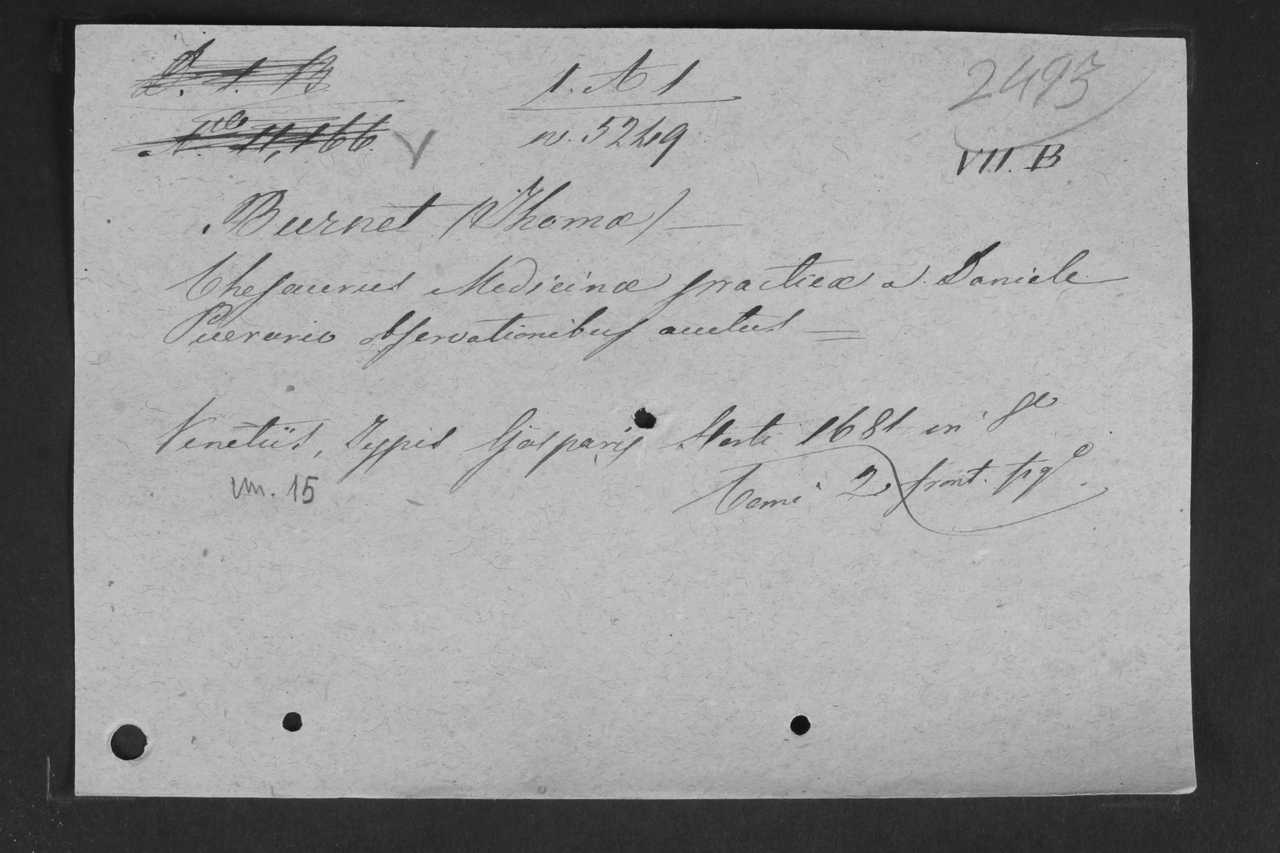 D. 1. B
1. A 1
2493
N.ro 11,166
n. 5249
VII. B
Burnet (Thomæ) —
Thesaurus Medicinæ practicæ a Daniele
Puerario observationibus auctus =
Venetiis, Typis Gasparis Storti 1681 in 8°
vm. 15
Tomi 2 front. fig.e